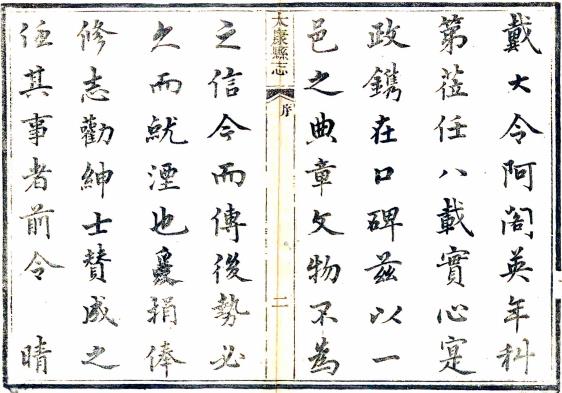 戴大令阿閣英年科
第蒞任八載實心寔
政鐫在口碑茲以一
邑之典章文物不為
太康縣志
序
二
之信今而傳後勢必
久而就湮也爰捐俸
修志勸紳士贊成之
其事者前令　晴